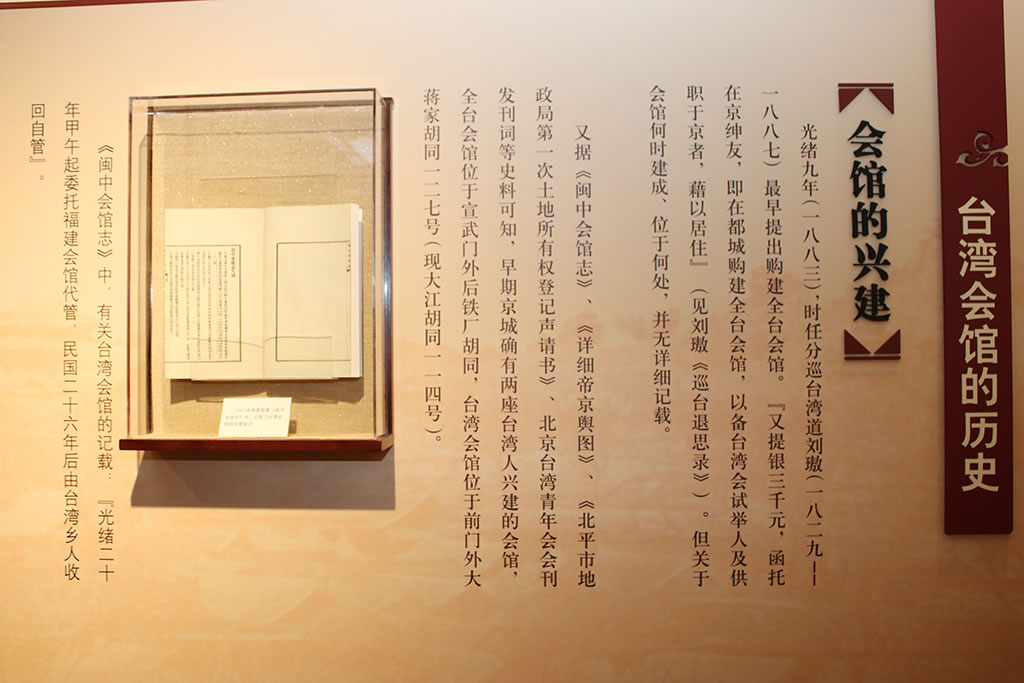 台湾会馆的历史
会馆的兴建
光绪九年(一八八三),时任分巡台湾道刘璈(一八二九——
一八八七)最早提出购建全台会馆。『又提银三千元,函托
在京绅友,即在都城购建全台会馆,以备台湾会试举人及供
职于京者,藉以居住』(见刘璈《巡台退思录》)。但关于
会馆何时建成、位于何处,并无详细记载。
又据《闽中会馆志》、《详细帝京舆图》、《北平市地
政局第一次土地所有权登记声请书》、北京台湾青年会会刊
发刊词等史料可知,早期京城确有两座台湾人兴建的会馆,
全台会馆位于宣武门外后铁厂胡同,台湾会馆位于前门外大
蒋家胡同一二七号(现大江胡同一一四号)。
《闽中会馆志》中,有关台湾会馆的记载:『光绪二十
年甲午起委托福建会馆代管,民国二十六年后由台湾乡人收
回自管』。